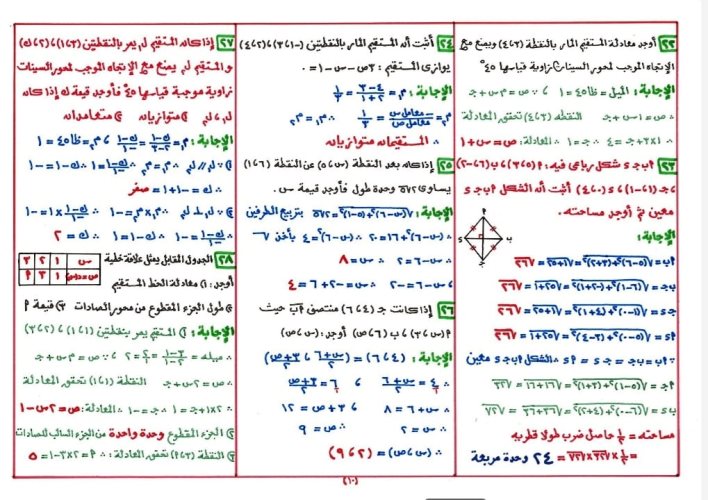 ٢٢ أوجد معادلة المستقيم المار بالنقطة (٣،٤) ويصنع مع
الإتجاه الموجب لمحور السينات زاوية قياسها ٤٥°
الإجابة: الميل = ظا٤٥ = ١ ∴ ص = س + جـ
النقطة (٣،٤) تحقق المعادلة
∴ ١×٣ + جـ = ٤ ∴ جـ = ١ ∴ المعادلة: ص = س + ١
٢٣ أ ب جـ د شكل رباعى فيه: أ(٥،٣)، ب(٦،-٢)
، جـ(١،-١)، د(٠،٤) أثبت أن الشكل أ ب جـ د
معين ثم أوجد مساحته.
الإجابة:
أب = √(٦-٥)²+(٢+٣)² = √٢٥+١ = √٢٦
ب جـ = √(١-٦)²+(-١+٢)² = √٢٥+١ = √٢٦
جـ د = √(١-٠)²+(٤+١)² = √٢٥+١ = √٢٦
أد = √(٥-٠)²+(٣-٤)² = √٢٥+١ = √٢٦
∵ أب = ب جـ = جـ د = أد ∴ الشكل أ ب جـ د معين
أجـ = √(٥-١)²+(٣+١)² = √١٦+١٦ = √٣٢
ب د = √(٦-٠)²+(٤+٢)² = √٣٦+٣٦ = √٧٢
مساحته = ½ حاصل ضرب طولا قطريه
= ½ × √٣٢ × √٧٢ = ٢٤ وحدة مربعة
٢٤ أثبت أن المستقيم المار بالنقطتين (-١،٣)،(٢،٤)
يوازى المستقيم: ٣ص - س - ١ = ٠
الإجابة: م١ = ٤-٣/٢+١ = ١/٣
م٢ = -معامل س/معامل ص = ١/٣ ∴ م١ = م٢
∴ المستقيمان متوازيان
٢٥ إذا كان بعد النقطة (س،٥) عن النقطة (٦،١)
يساوى ٢√٥ وحدة طول فأوجد قيمة س.
الإجابة: √(س-٦)²+(٥-١)² = ٢√٥ بتربيع الطرفين
(س-٦)²+١٦ = ٢٠ ∴ (س-٦)² = ٤ بأخذ √
∴ س-٦ = ٢ ∴ س = ٨
، س-٦ = -٢ ∴ س = -٢+٦ = ٤
٢٦ إذا كانت جـ (٦،٤) منتصف أب حيث
أ(س،٣)، ب(٦،ص) أوجد: (س،ص)
الإجابة: (٦،٤) = (س+٦/٢ ، ٣+ص/٢)
∴ س+٦/٢ = ٤/١ ، ٣+ص/٢ = ٦/١
∴ س+٦ = ٨ ، ٣+ص = ١٢
∴ س = ٢ ∴ ص = ٩
∴ (س،ص) = (٢،٩)
٢٧ إذا كان المستقيم ل١ يمر بالنقطتين (٣،١)،(٢،ك)
و المستقيم ل٢ يصنع مع الإتجاه الموجب لمحور السينات
زاوية موجبة قياسها ٤٥° فأوجد قيمة ك إذا كان
ل١، ل٢ ① متوازيان ② متعامدان
الإجابة: م١ = ك-١/٢-٣ = ك-١/-١ ، م٢ = ظا٤٥ = ١
① ل١ // ل٢ ∴ م١ = م٢ ∴ ك-١/-١ = ١ ∴ ك-١ = -١
∴ ك = -١+١ = صفر
② ∵ ل١ ⊥ ل٢ ∴ م١×م٢ = -١ ∴ ك-١/-١ × ١ = -١
∴ ك-١/-١ = -١ ∴ ك-١ = ١ ∴ ك = ٢
٢٨ الجدول المقابل يمثل علاقة خطية
س ١ ٢ ٣
ص=د(س) ١ ٣ أ
أوجد: ① معادلة الخط المستقيم
② طول الجزء المقطوع من محور الصادات ③ قيمة أ
الإجابة: ① المستقيم يمر بنقطتين (١،١)،(٢،٣)
∴ ميله = ٣-١/٢-١ = ٢/١ = ٢ ، ∵ ص = م س + جـ
∴ ص = ٢س + جـ النقطة (١،١) تحقق المعادلة
∴ ٢×١ + جـ = ١ ∴ جـ = -١ ∴ المعادلة: ص = ٢س-١
② الجزء المقطوع وحدة واحدة من الجزء السالب للصادات
③ النقطة (٣،أ) تحقق المعادلة: ∴ أ = ٢×٣-١ = ٥
(١٠)